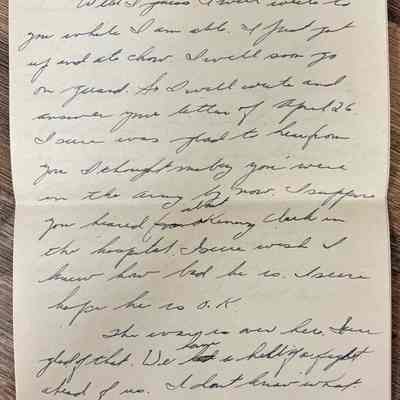 Well I guess I will write to
you while I am able. I just got
up and ate chow. I will soon go
on guard. So I will write and
answer your letter of April 26.
I sure was glad to hear from
you I thought maby you were
in the army by now. I suppose
you heard about Kenny Clark in
the hospital. I sure wish I
knew how bad he is. I sure
hope he is O.K
The war is over here, I am
glad of that. We have a hell of a fight
ahead of us. I don't know what